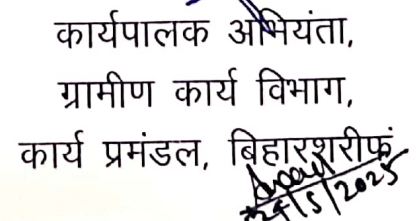 कार्यपालक अभियंता,
ग्रामीण कार्य विभाग,
कार्य प्रमंडल, बिहारशरीफ